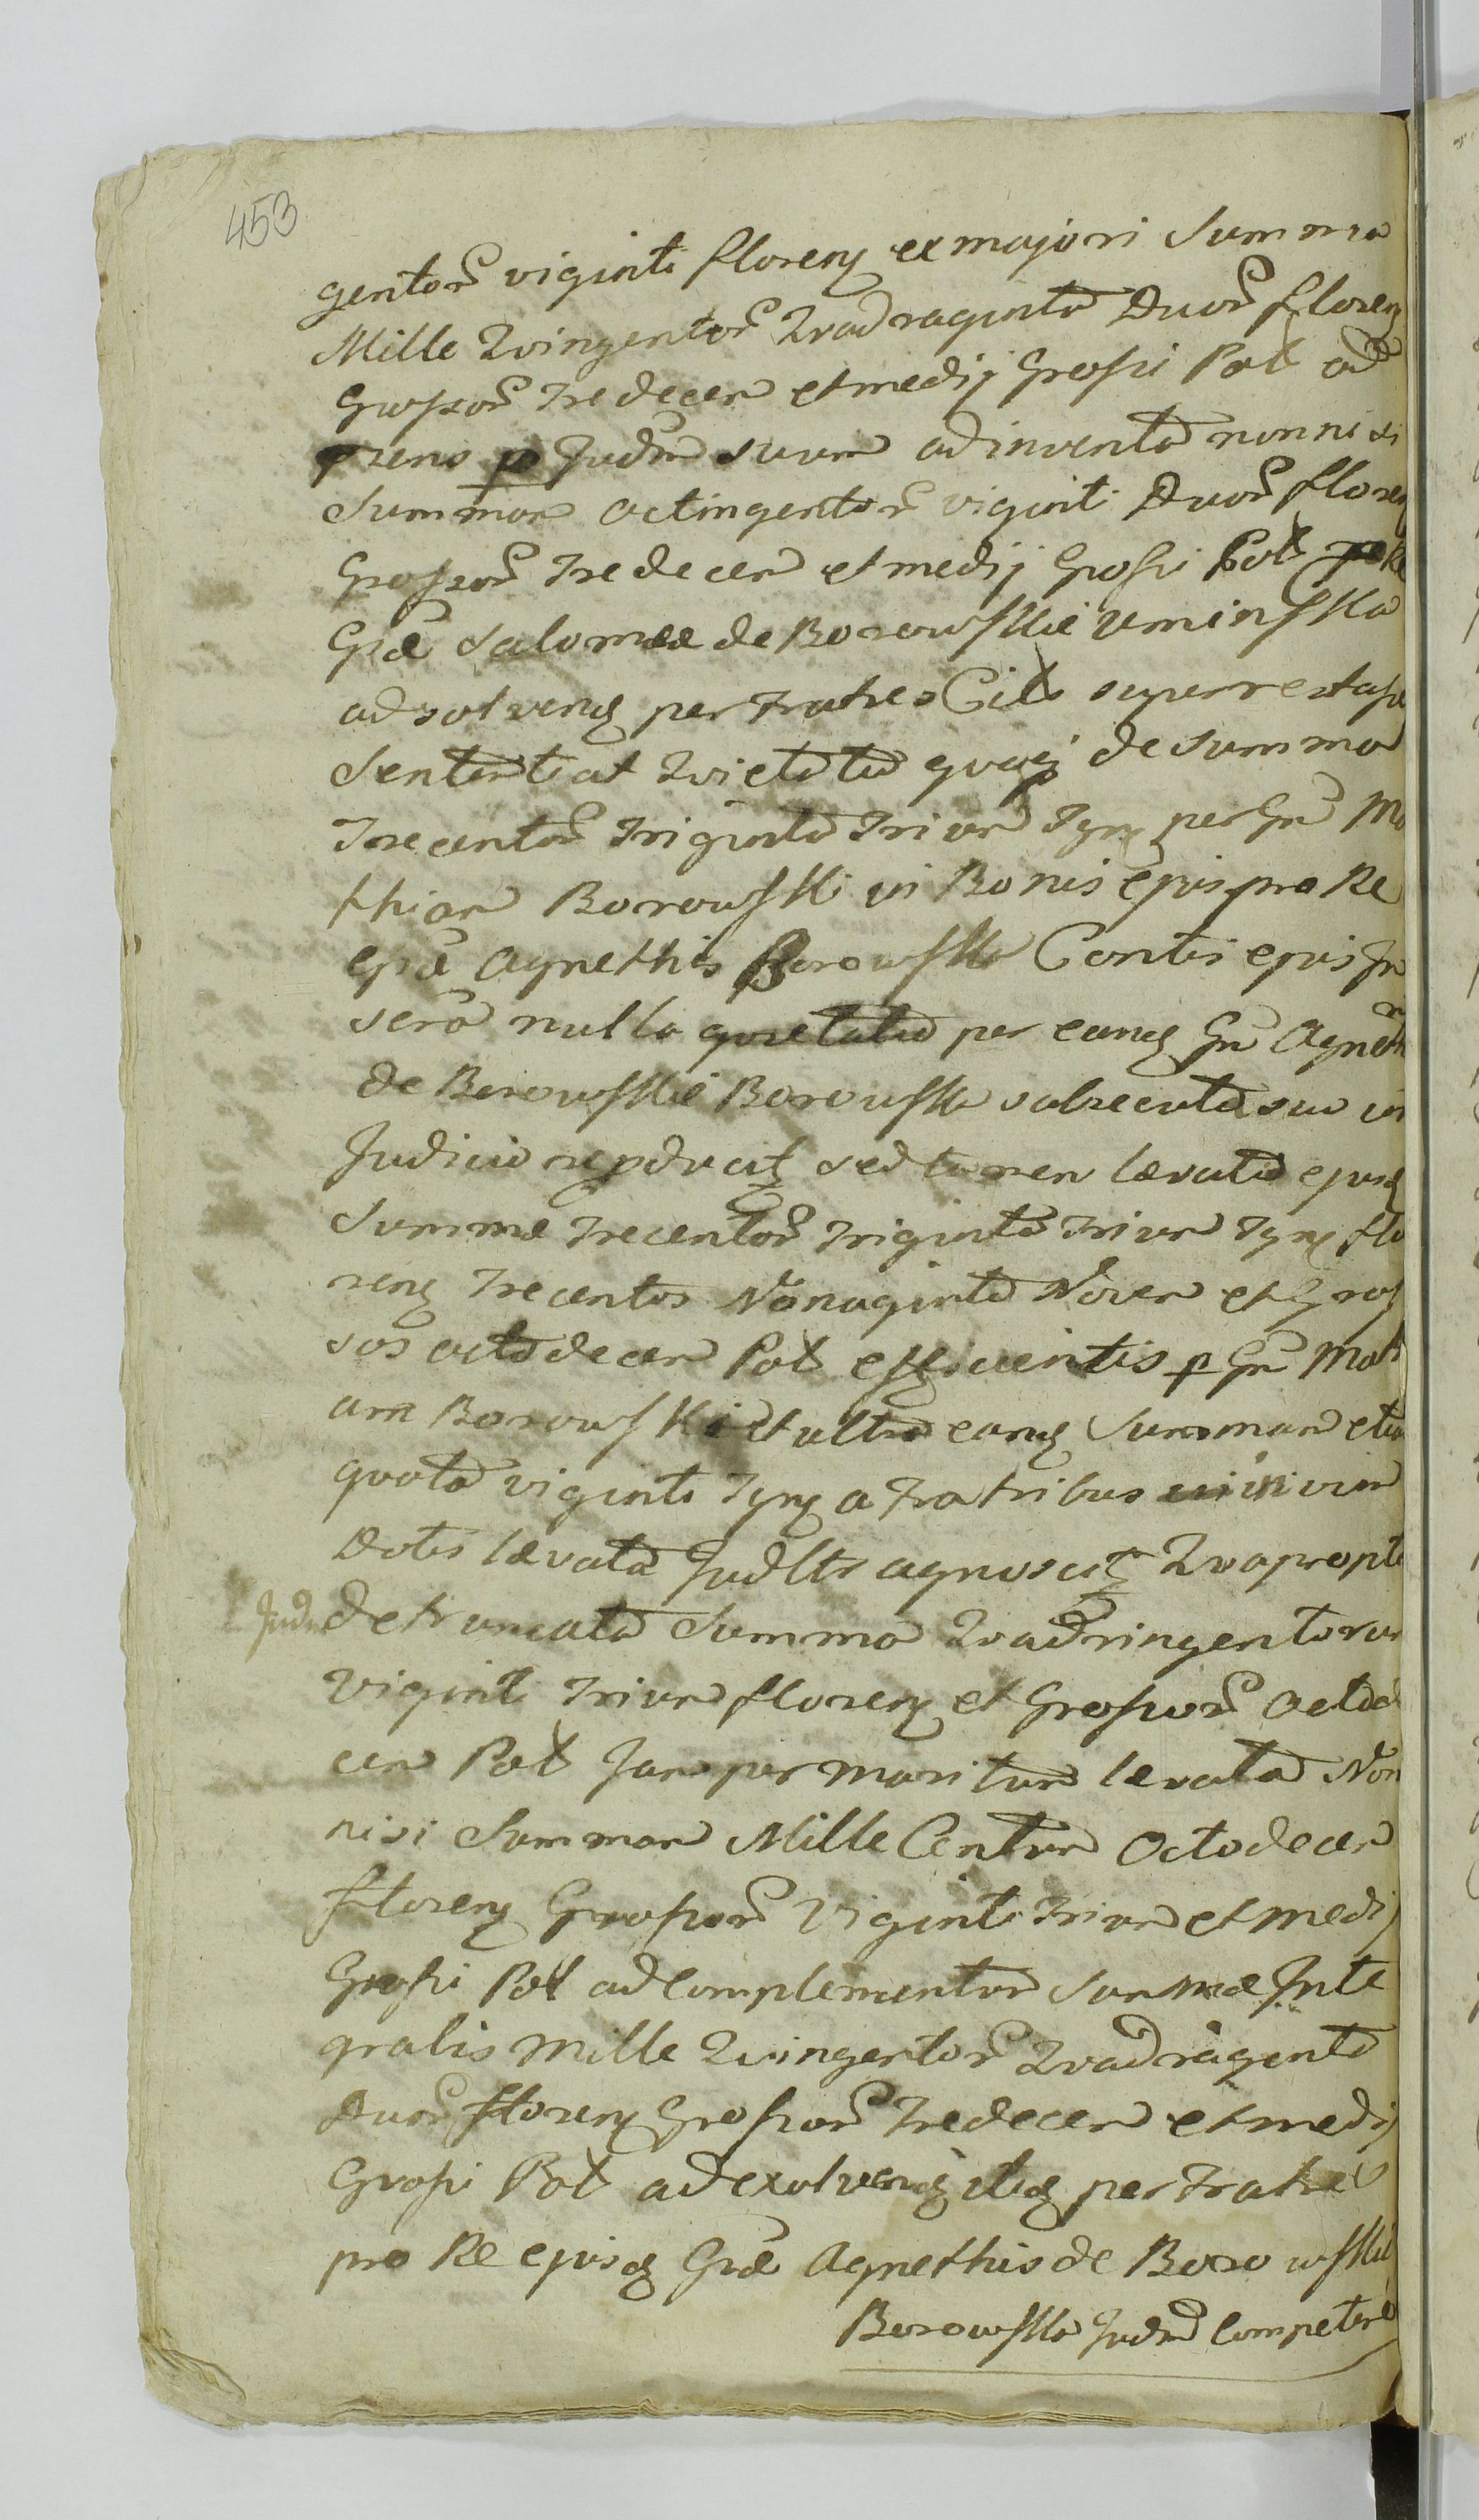 453
gentor̃ viginti floreņ ex majori Summa
Mille Qvingentor̃ Qvadraginta Duor̃ floreņ
Grossor̃ Tredecem et medij Grossi Pol ad
præns p Judm̃ suum adinventa nonnisi
Summam Octingentor̃ viginti Duor̃ floreņ
Grossor̃ Tredecem et medij Grossi Pol Re
Gsæ Salomeæ de Borowskie Uminska
adsolvenḍ per Fratres superextasse
Sententiat Qvietatio qvaq de Summa
Trecentor̃ Triginta Trium Tynf per Gñ Ma
thiam Borowski in Bonis ejus pro Re
Gsæ Agnethis Borowska Contis ejus In
serã nulla qvietatio per eanḍ Gñ Agneth
de Borowskie Borowska subsecuta sua in
Judicio repducitꝫ sed tamen levatio ejusḍ
Summæ Trecentor̃ Triginta Trium Tynf flo
renꝫ Trecentos Nonaginta Novem et Gros
sos octodecem Pol efficientis p Gñ Math
am Borowski et ultra eanḍ Summam etiam
qvota viginti Tynf a Fratribus in vim
Dotis levata Judltr agnoscitꝫ Qvapropte
Judm detruncata Summa Qvadringentorum
Viginti Trium floreņ et Grossor̃ Octode
cem Pol Jam per Maritum levata Non
nisi Summam Mille Centum Octodecem
floreņ Grossor̃ Viginti Trium et medij
Grossi Pol ad Complementum Summæ Inte
gralis Mille Qvingentor̃ Qvadraginta
Duor̃ floreņ Grossor̃ Tredecem et medij
Grossi Pol ad exolvenḍ itidḍ per Fratres
pro Re ejusḍ Gsæ Agnethis de Borowskie
Borowska Judm Competere